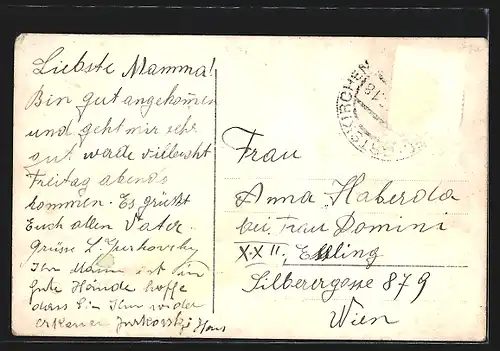 Liebste Mamma!
Bin gut angekommen
und geht mir sehr
gut werde vielleicht
Freitag abends
kommen. Es grüsst
Euch allen Vater.
Grüsse L. Jurkovsky
Ihr Mann ist in
gute Hände hoffe
dass Sie Ihn wieder
erkennen Jurkovszki Hans
Frau
Anna Haberda
bei Frau Domini
XXII. Essling
Silberergasse 879
Wien